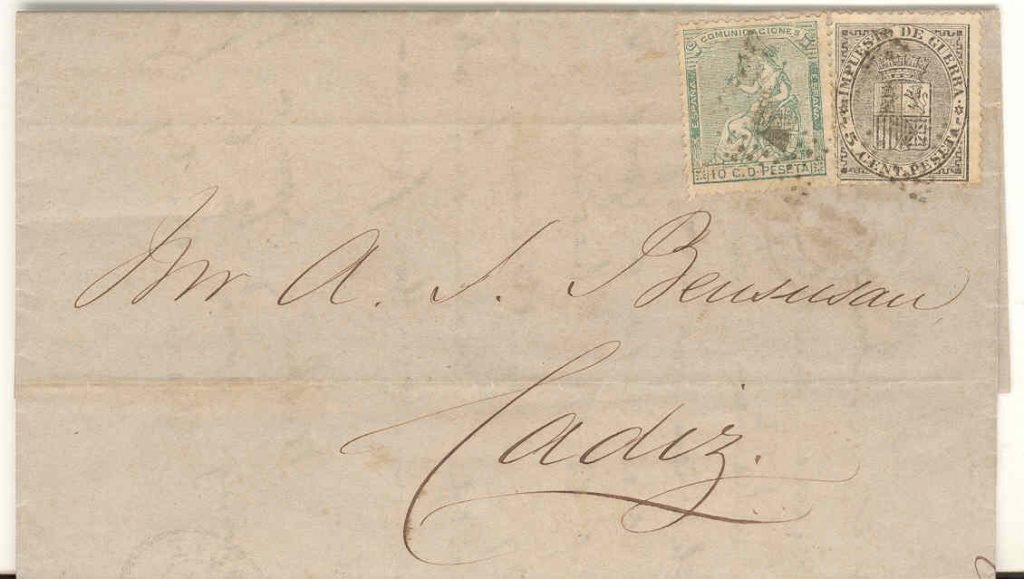 COMUNICACIONES
ESPAÑA
ESPAÑA
10 C. D. PESETA
IMPUESTO DE GUERRA
5 CENT. PESETA
Mr A. S. Bensusan
Cadiz.